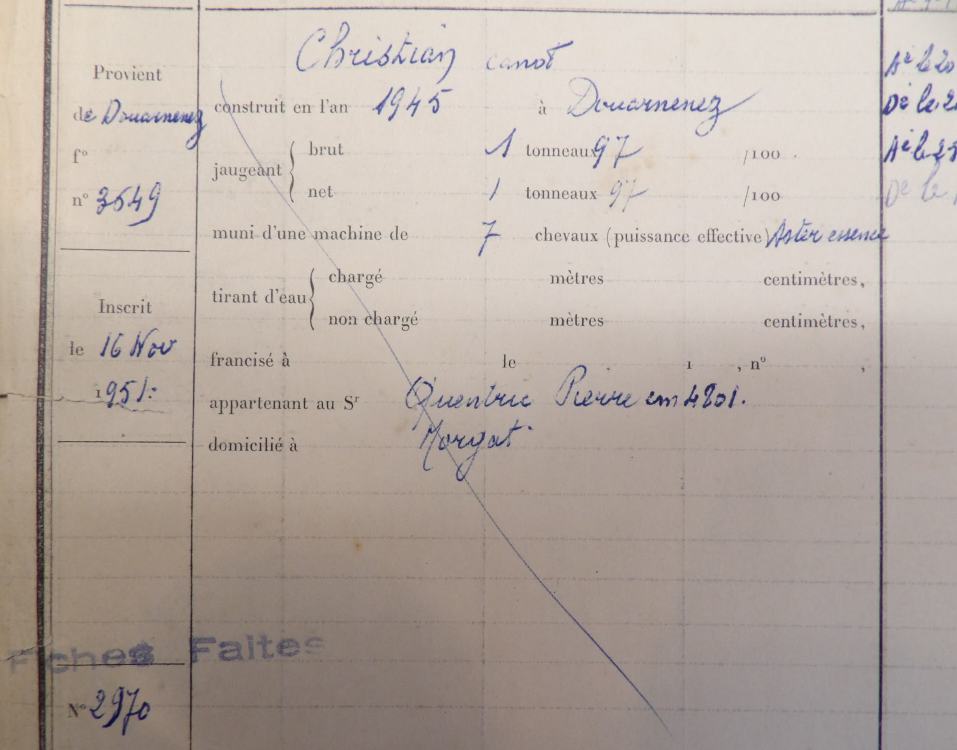 Provient
de Douarnenez
fº
nº 3549
Inscrit
le 16 Nov
1951.
Fiches Faites
Nº 2970
Christian canot
construit en l'an 1945 à Douarnenez
jaugeant brut 1 tonneaux 97 /100.
net 1 tonneaux 97 /100
muni d'une machine de 7 chevaux (puissance effective) Aster essence
tirant d'eau chargé mètres centimètres,
non chargé mètres centimètres,
francisé à le 1 , nº ,
appartenant au Sr Quentric Pierre cm 4801.
domicilié à Morgat